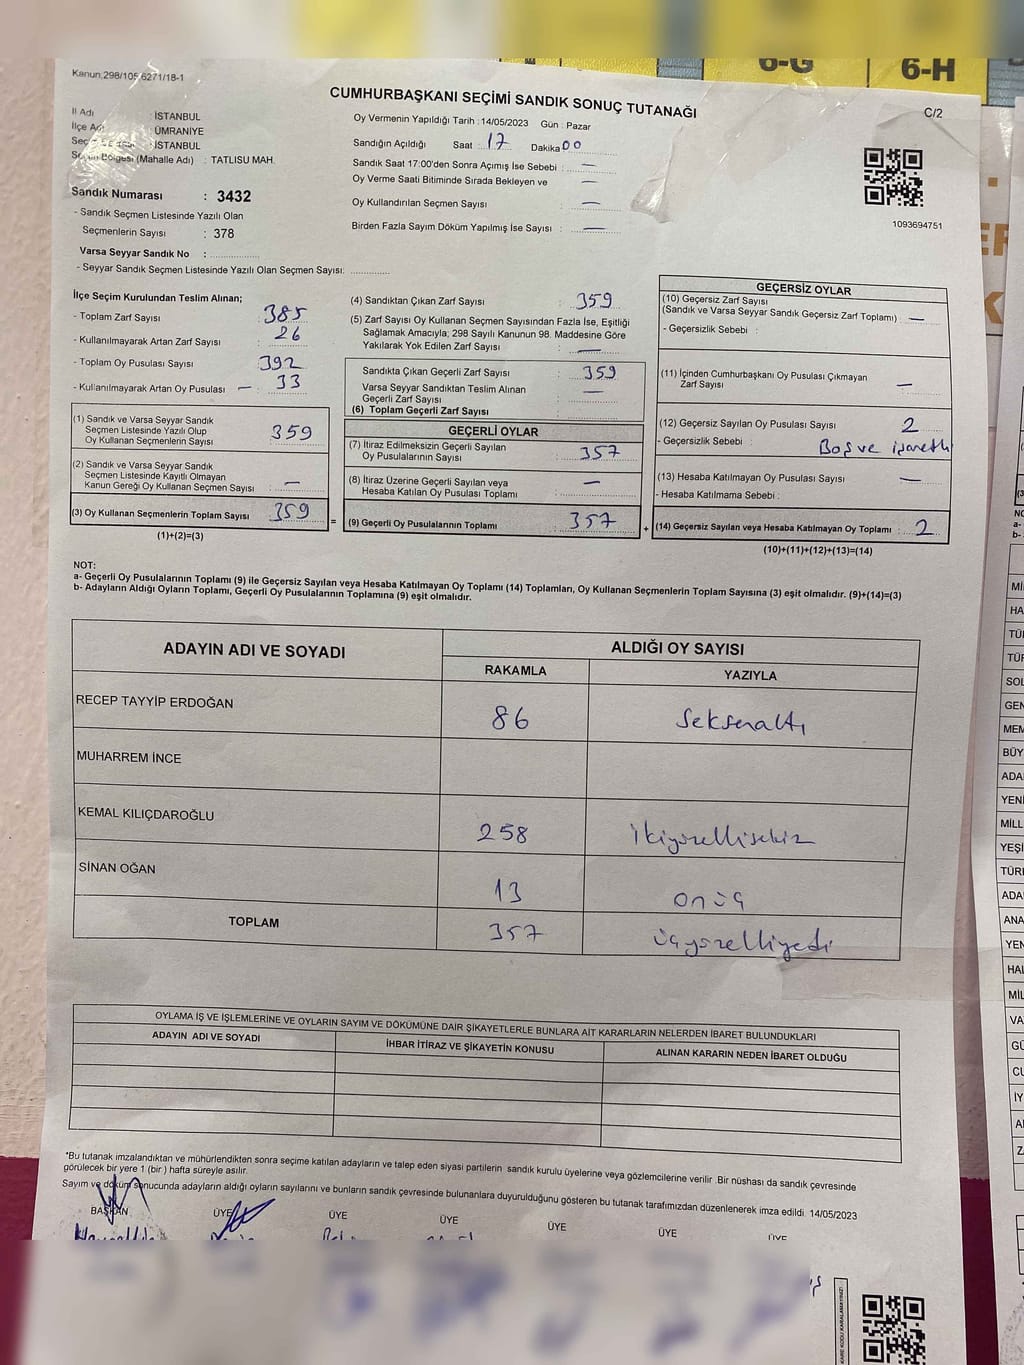 6-G
6-H
Kanun,298/105,6271/18-1
CUMHURBAŞKANI SEÇİMİ SANDIK SONUÇ TUTANAĞI
C/2
İl Adı İSTANBUL
İlçe Adı ÜMRANİYE
İSTANBUL
Seçim Bölgesi (Mahalle Adı) : TATLISU MAH.
Sandık Numarası : 3432
- Sandık Seçmen Listesinde Yazılı Olan
Seçmenlerin Sayısı : 378
Varsa Seyyar Sandık No :
- Seyyar Sandık Seçmen Listesinde Yazılı Olan Seçmen Sayısı:
Oy Vermenin Yapıldığı Tarih :14/05/2023 Gün : Pazar
Sandığın Açıldığı Saat : 17 Dakika 00
Sandık Saat 17:00'den Sonra Açımış İse Sebebi : —
Oy Verme Saati Bitiminde Sırada Bekleyen ve —
Oy Kullandırılan Seçmen Sayısı : —
Birden Fazla Sayım Döküm Yapılmış İse Sayısı : —
1093694751
İlçe Seçim Kurulundan Teslim Alınan;
- Toplam Zarf Sayısı : 385
- Kullanılmayarak Artan Zarf Sayısı : 26
- Toplam Oy Pusulası Sayısı : 392
- Kullanılmayarak Artan Oy Pusulası — 33
(1) Sandık ve Varsa Seyyar Sandık
Seçmen Listesinde Yazılı Olup
Oy Kullanan Seçmenlerin Sayısı : 359
(2) Sandık ve Varsa Seyyar Sandık
Seçmen Listesinde Kayıtlı Olmayan
Kanun Gereği Oy Kullanan Seçmen Sayısı : —
(3) Oy Kullanan Seçmenlerin Toplam Sayısı : 359 =
(1)+(2)=(3)
(4) Sandıktan Çıkan Zarf Sayısı : 359
(5) Zarf Sayısı Oy Kullanan Seçmen Sayısından Fazla İse, Eşitliği
Sağlamak Amacıyla; 298 Sayılı Kanunun 98. Maddesine Göre
Yakılarak Yok Edilen Zarf Sayısı : —
Sandıkta Çıkan Geçerli Zarf Sayısı : 359
Varsa Seyyar Sandıktan Teslim Alınan
Geçerli Zarf Sayısı : —
(6) Toplam Geçerli Zarf Sayısı :
GEÇERLİ OYLAR
(7) İtiraz Edilmeksizin Geçerli Sayılan
Oy Pusulalarının Sayısı : 357
(8) İtiraz Üzerine Geçerli Sayılan veya
Hesaba Katılan Oy Pusulası Toplamı : —
(9) Geçerli Oy Pusulalarının Toplamı : 357 +
GEÇERSİZ OYLAR
(10) Geçersiz Zarf Sayısı
(Sandık ve Varsa Seyyar Sandık Geçersiz Zarf Toplamı) : —
- Geçersizlik Sebebi :
(11) İçinden Cumhurbaşkanı Oy Pusulası Çıkmayan
Zarf Sayısı : —
(12) Geçersiz Sayılan Oy Pusulası Sayısı : 2
- Geçersizlik Sebebi : Boş ve işaretli
(13) Hesaba Katılmayan Oy Pusulası Sayısı : —
- Hesaba Katılmama Sebebi :
(14) Geçersiz Sayılan veya Hesaba Katılmayan Oy Toplamı : 2
(10)+(11)+(12)+(13)=(14)
NOT:
a- Geçerli Oy Pusulalarının Toplamı (9) ile Geçersiz Sayılan veya Hesaba Katılmayan Oy Toplamı (14) Toplamları, Oy Kullanan Seçmenlerin Toplam Sayısına (3) eşit olmalıdır. (9)+(14)=(3)
b- Adayların Aldığı Oyların Toplamı, Geçerli Oy Pusulalarının Toplamına (9) eşit olmalıdır.
ADAYIN ADI VE SOYADI ALDIĞI OY SAYISI
RAKAMLA YAZIYLA
RECEP TAYYİP ERDOĞAN 86 Seksenaltı
MUHARREM İNCE
KEMAL KILIÇDAROĞLU 258 ikiyüzellisekiz
SİNAN OĞAN 13 onüç
TOPLAM 357 üçyüzelliyedi
OYLAMA İŞ VE İŞLEMLERİNE VE OYLARIN SAYIM VE DÖKÜMÜNE DAİR ŞİKAYETLERLE BUNLARA AİT KARARLARIN NELERDEN İBARET BULUNDUKLARI
ADAYIN ADI VE SOYADI İHBAR İTİRAZ VE ŞİKAYETİN KONUSU ALINAN KARARIN NEDEN İBARET OLDUĞU
*Bu tutanak imzalandıktan ve mühürlendikten sonra seçime katılan adayların ve talep eden siyasi partilerin sandık kurulu üyelerine veya gözlemcilerine verilir .Bir nüshası da sandık çevresinde
görülecek bir yere 1 (bir ) hafta süreyle asılır.
Sayım ve döküm sonucunda adayların aldığı oyların sayılarını ve bunların sandık çevresinde bulunanlara duyurulduğunu gösteren bu tutanak tarafımızdan düzenlenerek imza edildi. 14/05/2023
BAŞKAN ÜYE ÜYE ÜYE ÜYE ÜYE ÜYE